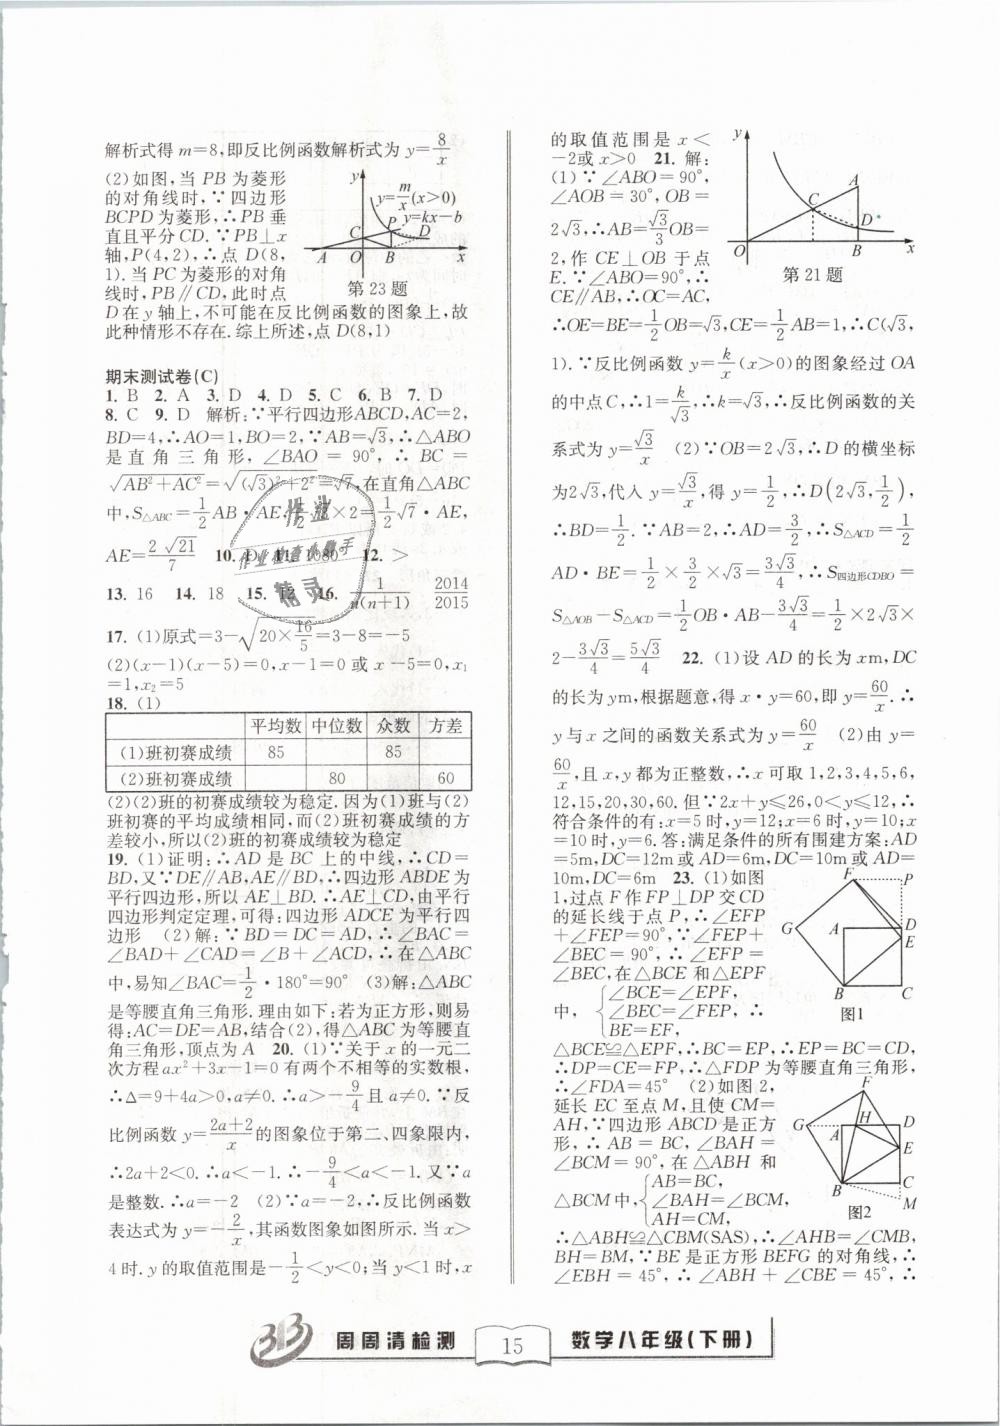 解析式得 m=8,即反比例函数解析式为 y=8/x
(2)如图,当 PB 为菱形
的对角线时,∵四边形
BCPD 为菱形,∴PB 垂
直且平分 CD.∵PB⊥x
轴,P(4,2),∴点 D(8,
1).当 PC 为菱形的对角
线时,PB∥CD,此时点
y
y=m/x(x>0)
y=kx-b
C P D
A O B x
第 23 题
D 在 y 轴上,不可能在反比例函数的图象上,故
此种情形不存在.综上所述,点 D(8,1)
期末测试卷(C)
1. B 2. A 3. D 4. D 5. C 6. B 7. D
8. C 9. D 解析:∵平行四边形ABCD,AC=2,
BD=4,∴AO=1,BO=2,∵AB=√3,∴△ABO
是直角三角形,∠BAO = 90°,∴ BC =
√(AB²+AC²)=√((√3)²+2²)=√7,在直角△ABC
中,S△ABC=1/2 AB·AE,1/2 ×2=1/2√7·AE,
AE=2√21/7 10. D 11. 1080 12. >
13. 16 14. 18 15. 12 16. 1/n(n+1) 2014/2015
17. (1)原式=3-√(20×16/5)=3-8=-5
(2)(x-1)(x-5)=0,x-1=0 或 x-5=0,x₁
=1,x₂=5
18. (1)
平均数 中位数 众数 方差
(1)班初赛成绩 85 85
(2)班初赛成绩 80 60
(2)(2)班的初赛成绩较为稳定.因为(1)班与(2)
班初赛的平均成绩相同,而(2)班初赛成绩的方
差较小,所以(2)班的初赛成绩较为稳定
19. (1)证明:∴AD 是 BC 上的中线,∴CD=
BD,又∵DE∥AB,AE∥BD,∴四边形 ABDE 为
平行四边形,所以 AE⊥BD.∴AE⊥CD,由平行
四边形判定定理,可得:四边形 ADCE 为平行四
边形 (2)解:∵BD=DC=AD,∴∠BAC=
∠BAD+∠CAD=∠B+∠ACD,∴在△ABC
中,易知∠BAC=1/2·180°=90° (3)解:△ABC
是等腰直角三角形.理由如下:若为正方形,则易
得:AC=DE=AB,结合(2),得△ABC 为等腰直
角三角形,顶点为 A 20. (1)∵关于 x 的一元二
次方程 ax²+3x-1=0 有两个不相等的实数根,
∴△=9+4a>0,a≠0.∴a>-9/4且 a≠0.∵反
比例函数 y=2a+2/x的图象位于第二、四象限内,
∴2a+2<0.∴a<-1.∴-9/4<a<-1.又∵a
是整数.∴a=-2 (2)∵a=-2,∴反比例函数
表达式为 y=-2/x,其函数图象如图所示.当 x>
4 时.y 的取值范围是-1/2<y<0;当 y<1 时,x
的取值范围是 x<
-2或 x>0 21. 解:
(1)∵∠ABO=90°,
∠AOB = 30°,OB =
2√3,∴AB=√3/3OB=
2,作 CE⊥OB 于点
E.∵∠ABO=90°,∴
CE∥AB,∴OC=AC,
y
A
C
D
O B x
第 21 题
∴OE=BE=1/2OB=√3,CE=1/2AB=1,∴C(√3,
1).∵反比例函数 y=k/x(x>0)的图象经过 OA
的中点C,∴1=k/√3,∴k=√3,∴反比例函数的关
系式为 y=√3/x (2)∵OB=2√3,∴D 的横坐标
为2√3,代入 y=√3/x,得 y=1/2,∴D(2√3,1/2),
∴BD=1/2.∵AB=2,∴AD=3/2,∴S△ACD=1/2
AD·BE=1/2×3/2×√3=3√3/4,∴S四边形CDBO=
S△AOB-S△ACD=1/2OB·AB-3√3/4=1/2×2√3×
2-3√3/4=5√3/4 22. (1)设 AD 的长为 xm,DC
的长为 ym,根据题意,得 x·y=60,即 y=60/x.∴
y 与 x 之间的函数关系式为 y=60/x (2)由 y=
60/x,且 x,y 都为正整数,∴x 可取 1,2,3,4,5,6,
12,15,20,30,60.但∵2x+y≤26,0<y≤12,∴
符合条件的有:x=5 时,y=12;x=6 时,y=10;x
=10 时,y=6.答:满足条件的所有围建方案:AD
=5m,DC=12m 或 AD=6m,DC=10m 或 AD=
10m,DC=6m 23. (1)如图
1,过点 F 作 FP⊥DP 交 CD
的延长线于点 P,∴∠EFP
+∠FEP=90°,∵∠FEP+
∠BEC = 90°,∴∠EFP =
∠BEC,在△BCE 和△EPF
中,{∠BCE=∠EPF,
∠BEC=∠FEP,∴
BE=EF,
F P
G A D
E
B C
图1
△BCE≌△EPF,∴BC=EP,∴EP=BC=CD,
∴DP=CE=FP,∴△FDP 为等腰直角三角形,
∴∠FDA=45° (2)如图 2,
延长 EC 至点 M,且使 CM=
AH,∵四边形 ABCD 是正方
形,∴ AB = BC,∠BAH =
∠BCM = 90°,在 △ABH 和
△BCM 中,{AB=BC,
∠BAH=∠BCM,
AH=CM,
F
G A H D
E
B C
M
图2
∴△ABH≌△CBM(SAS),∴∠AHB=∠CMB,
BH=BM,∵BE 是正方形 BEFG 的对角线,∴
∠EBH = 45°,∴ ∠ABH + ∠CBE = 45°,∴
作业
作业检查小帮手
精灵
周周清检测 15 数学八年级(下册)